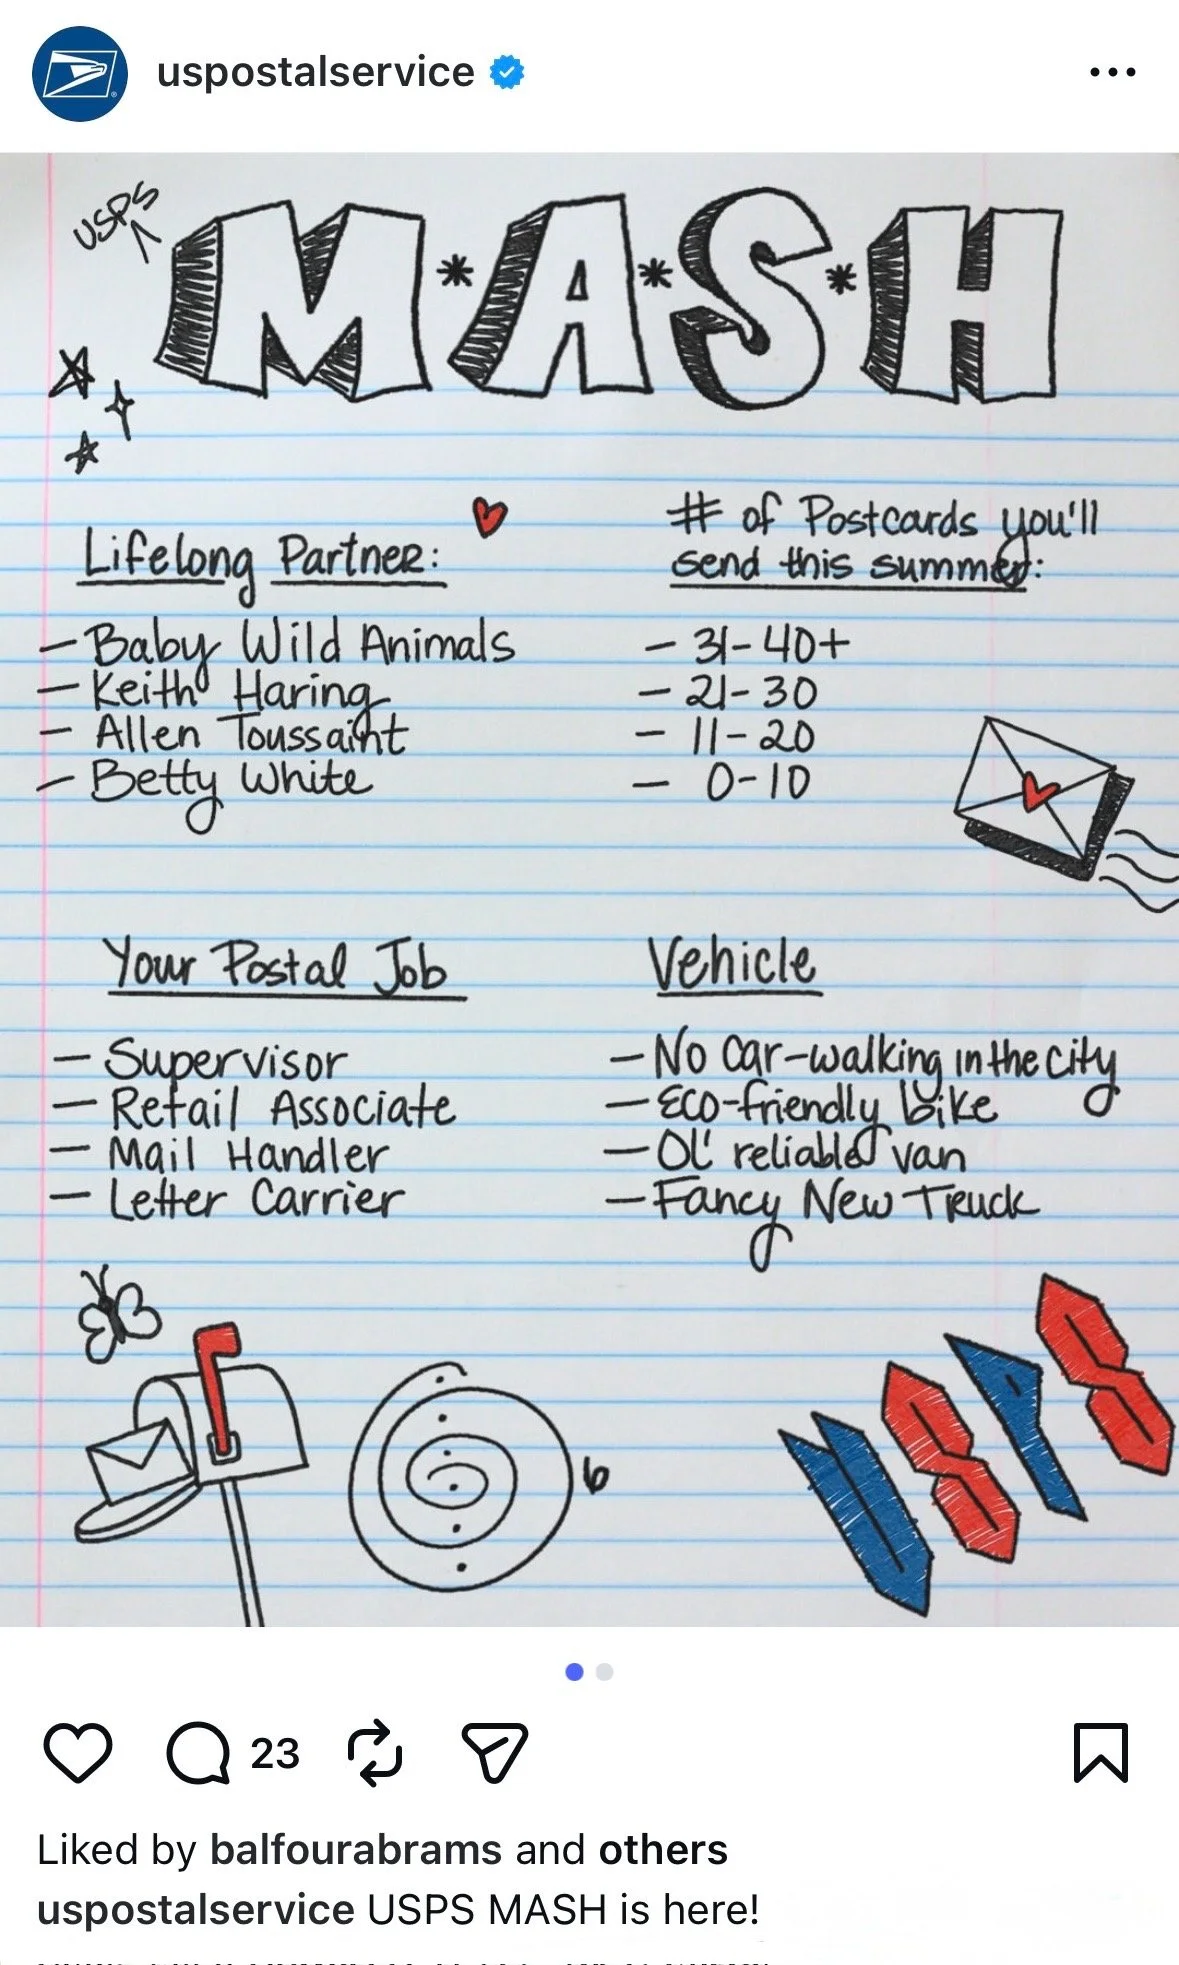 uspostalservice
USPS
M*A*S*H
Lifelong Partner:
- Baby Wild Animals
- Keith Haring
- Allen Toussaint
- Betty White
# of Postcards you'll
send this summer:
- 31-40+
- 21-30
- 11-20
- 0-10
Your Postal Job
- Supervisor
- Retail Associate
- Mail Handler
- Letter Carrier
Vehicle
- No car-walking in the city
- Eco-friendly bike
- Ol' reliable van
- Fancy New Truck
6
USPS
23
Liked by balfourabrams and others
uspostalservice USPS MASH is here!